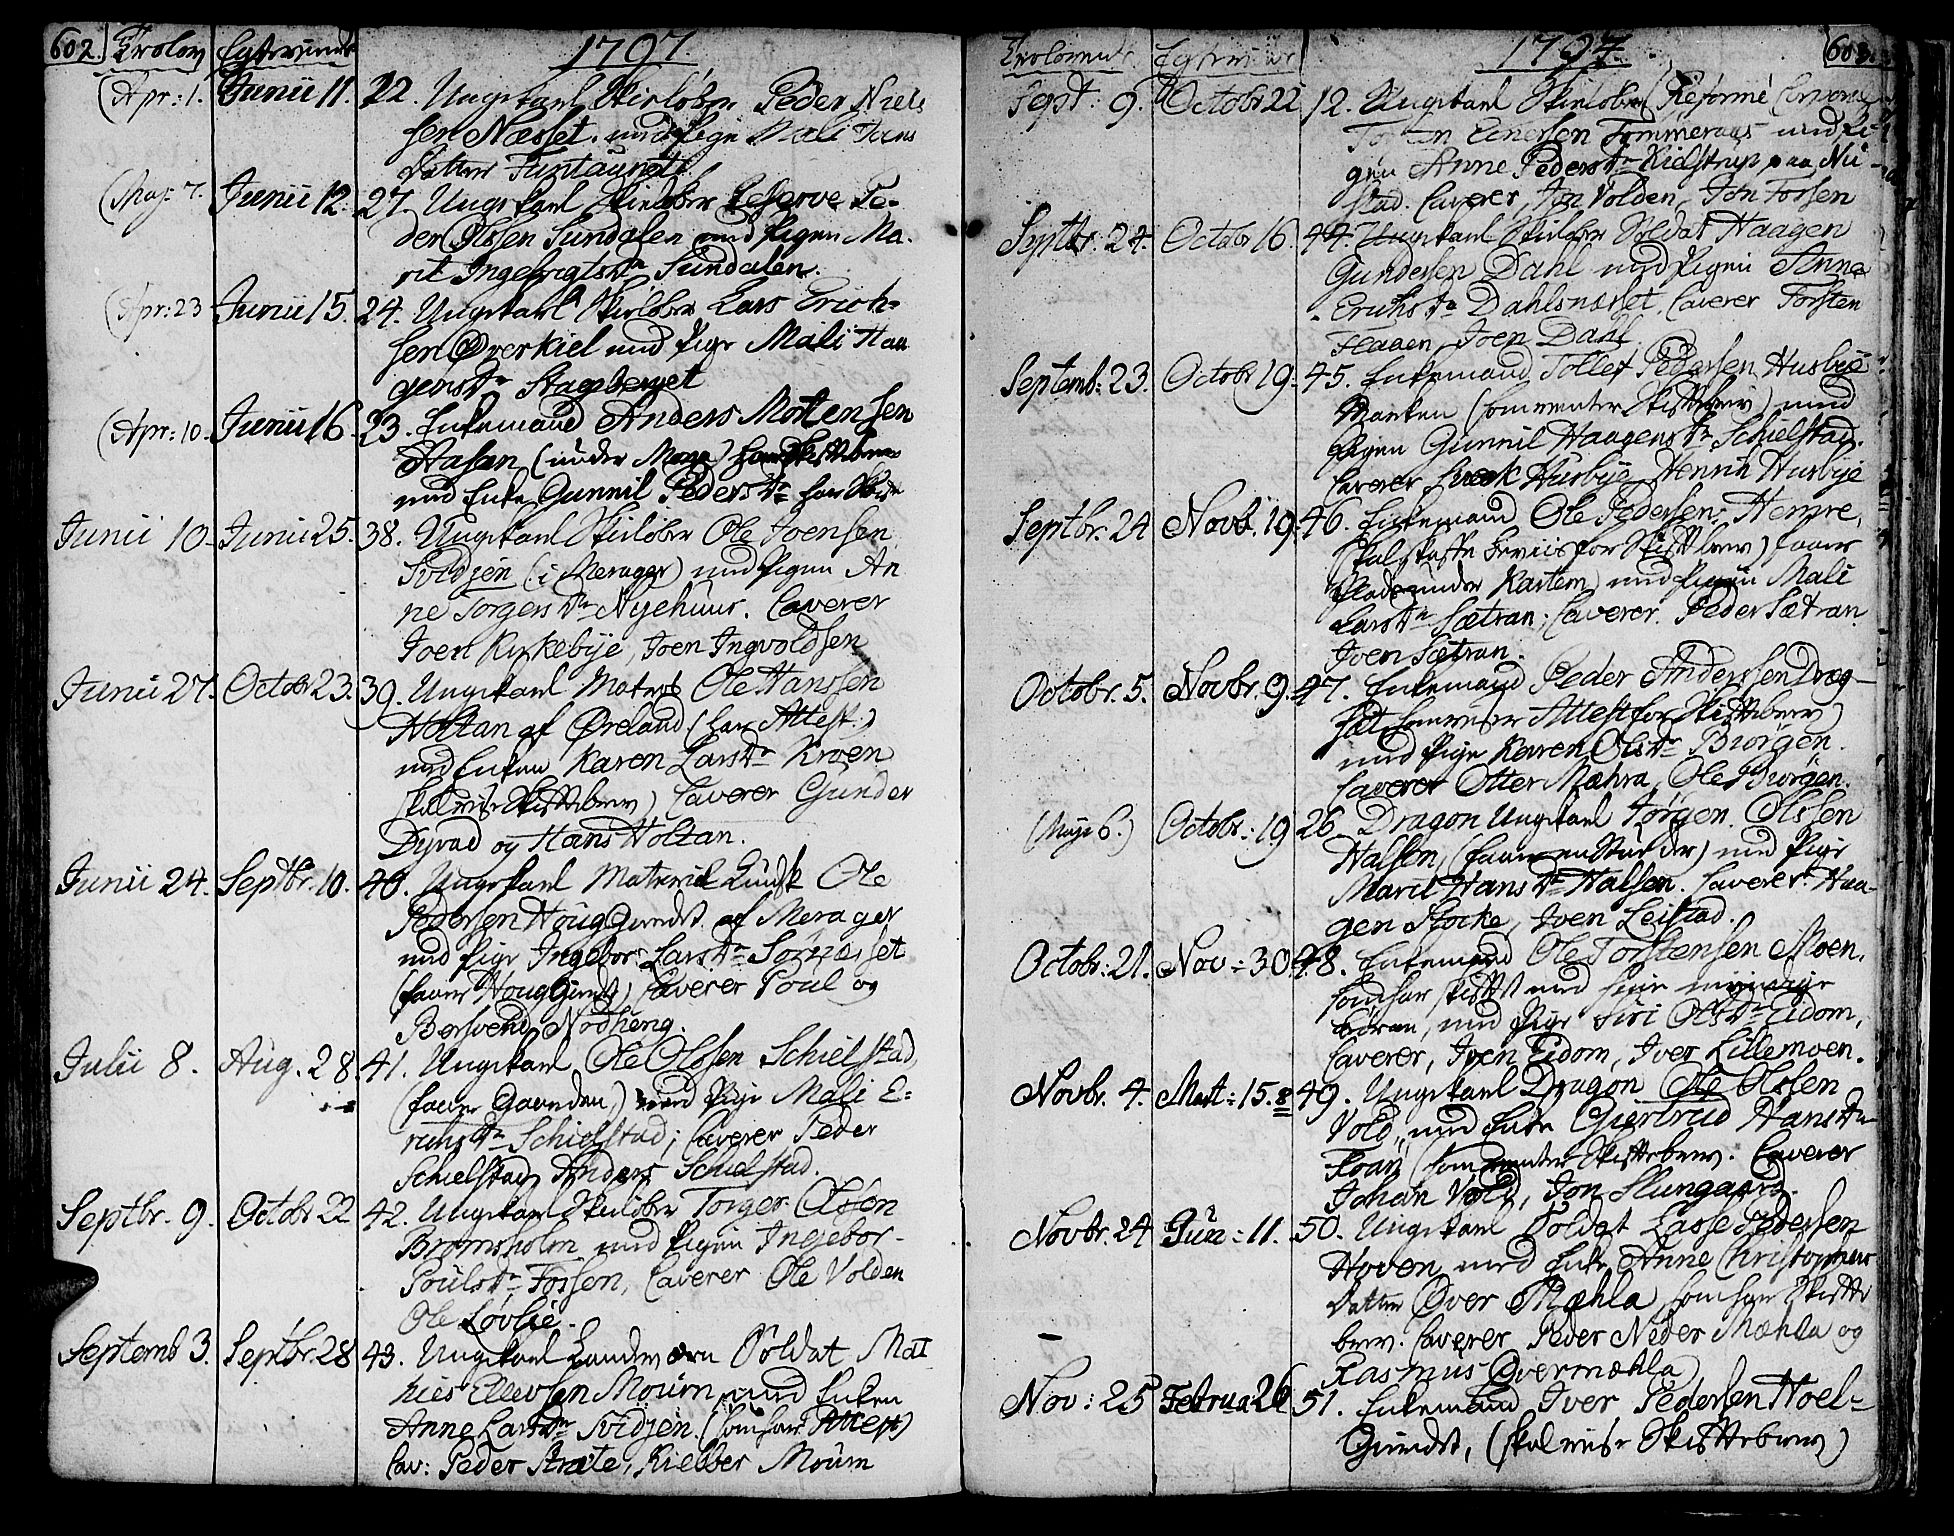 602. Trolov Egteviede
1797
(Apr: 1. Junii 11. 22. Ungekarl Skieløber Peder Niels
sen Næsset. med Pige Mali Jans
datter Funtaunet
(Maj: 7. Junii 12. 27. Ungekarl Skieløber Reserve Pe-
der Olssen Sundalen med Pigen Ma-
rit Ingebrigtsdr Sundalen.
(Apr: 23 Junii 15. 24. Ungekarl Skieløber Lars Erich-
sen Øverkiel med Pige Mali Haa
gensdr Stagsberget
(Apr: 10. Junii 16. 23. Enkemand Anders Mortensen
Hasan (under
med Enke Gunnil Pedersdr
Junii 10. Junii 25. 38. Ungekarl Skieløber Ole Joensen
Svidjen (i Merager) med Pigen An
ne Torgersdr Nyehuus. Caverer
Joen Kirkebye, Joen Ingvoldsen
Junii 27. Octobr 23. 39. Ungekarl Matros Ole Hanssen
Holtan af Øreland (har Attest)
med Enken Karen Larsdr Kroen
skal vise Skiftebrev) Caverer Gunder
Dyrad og Hans Holtan.
Junii 24. Septbr. 10. 40. Ungekarl Materiel Kudsk Ole
Pedersen Houg Grendst af Merager
med Pige Ingebor Larsdr
(faaer Houg Caverer Poul og
Bersvend Nodheng.
Julii 8. Aug. 28. 41. Ungekarl Ole Olssen Schielstad,
(faaer Gaarden,) med Pige Mali E-
richsdr Schielstad; Caverer Peder
Schielstad Anders Schielstad.
Septbr. 9. Octobr 22 42. Ungekarl Skieløber Torger Olssen
Bromsholm med Pigen Ingebor-
Poulsdr Fossen, Caverer Ole Volden
Ole Løvlie.
Septemb 3. Septbr. 28 43. Ungekarl Landeværn Soldat Mat
hies Ellevsen Mourn med Enken
Anne Larsdr Svidjen. (som har Attest)
Cav: Peder Stræte, Kield Mourn
Trolovede Egteviede 1797. 603
Sept: 9. Octobr 22 12. Ungekarl Skieløber (Reformé Corporal
Einersen Tømmeraas med Pi-
gen Anne Pedersdr Kielstrup paa Nu-
stad. Caverer, Jon Volden, Jon Fossen
Septbr: 24. Octobr 16. 44. Ungekarl Skieløber Soldat Haagen
Gundersen Dahl med Pigen Anne
Erichsdr Dahlsnæsset, Caverer Torsten
Flaaen Joen Dahl.
Septemb: 23. Octobr 19. 45. Enkemand Tollef Pedersen Husbye
Marken (som venter Skiftebrev) med
Pigen Gunnil Haagensdr Schielstad.
Caverer Husbye Henrik Husbye
Septbr. 24 Novb. 19. 46. Enkemand Ole Pedersen Hempe,
(skal skaffe beviis for Skiftebrev) faaer
Plads under Kartem) med Pigen Mali
Larsdr Sætran; Caverer. Peder Sætran
Joen Sætran.
Octobr. 5. Novbr. 9. 47. Enkemand Peder Anderssen Dræg-
set som viser Attest for Skiftebrev)
med Pige Karen Olsdr Biørgen.
Caverer Otter Mæhra, Ole Biørgen.
(Maji 6.) Octobr: 19 26. Dragon Ungekarl Jørgen Olssen
Halsen, (faaer med Pige
Marit Hansdr Halsen. Caverer Haa-
gen Stocke, Iven Leistad.
Octobr: 21. Nov: 30. 48. Enkemand Ole Torstensen Moen,
som har skiftet med sine myndige
Børn, med Pige Siri Olsdr Eidom,
Caverer, Iven Eidom, Iver Lillemoen.
Novbr. 4. Mart: 15. 8 49. Ungekarl Dragon Ole Olssen
Vold, med Enke Giertrud Hansdr
Floan (som venter Skiftebrev. Caverer
Johan Vold, Jon Slungaard.
Novbr. 24 Jun: 11. 50. Ungekarl Soldat Lasse Pedersen
Hoven, med Enke Anne Christopher
datter Øver Mæhla, som har Skifte
brev. Caverer Peder Neder Mæhla og
Rasmus Overmæhla
Nov: 25 Februa: 26 51. Enkemand Iver Pedersen Hoel-
Grendst, (skal vise Skiftebrev)